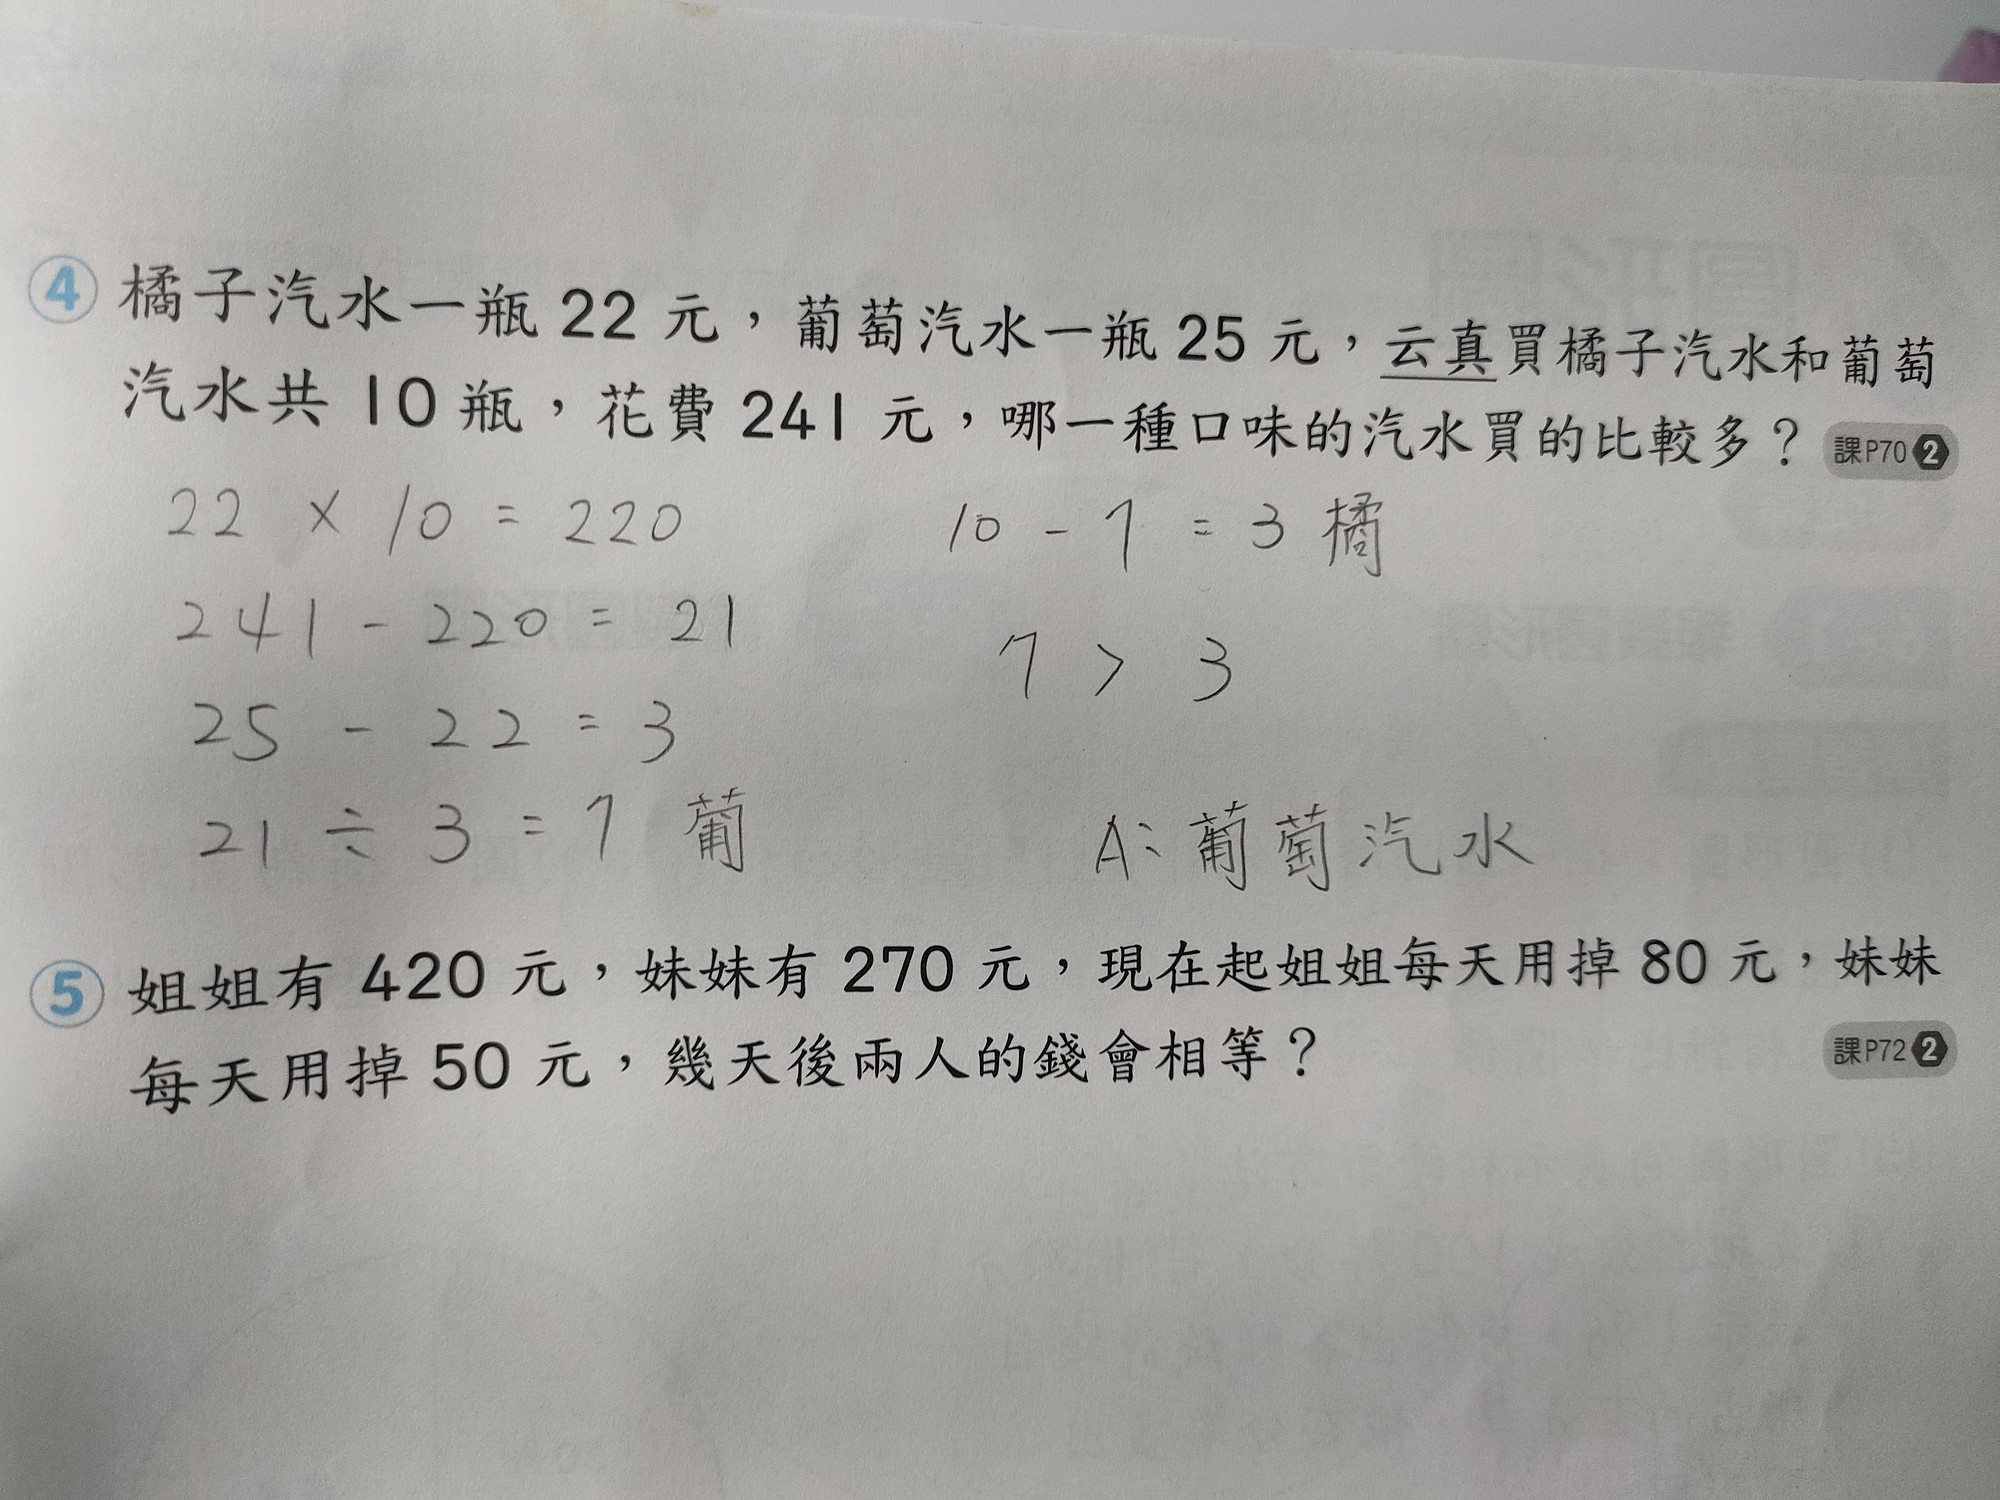 ④ 橘子汽水一瓶 22 元，葡萄汽水一瓶 25 元，云真買橘子汽水和葡萄
汽水共 10 瓶，花費 241 元，哪一種口味的汽水買的比較多？ 課P70 2
22 × 10 = 220
241 - 220 = 21
25 - 22 = 3
21 ÷ 3 = 7 葡
10 - 7 = 3 橘
7 > 3
A: 葡萄汽水
⑤ 姐姐有 420 元，妹妹有 270 元，現在起姐姐每天用掉 80 元，妹妹
每天用掉 50 元，幾天後兩人的錢會相等？ 課P72 2